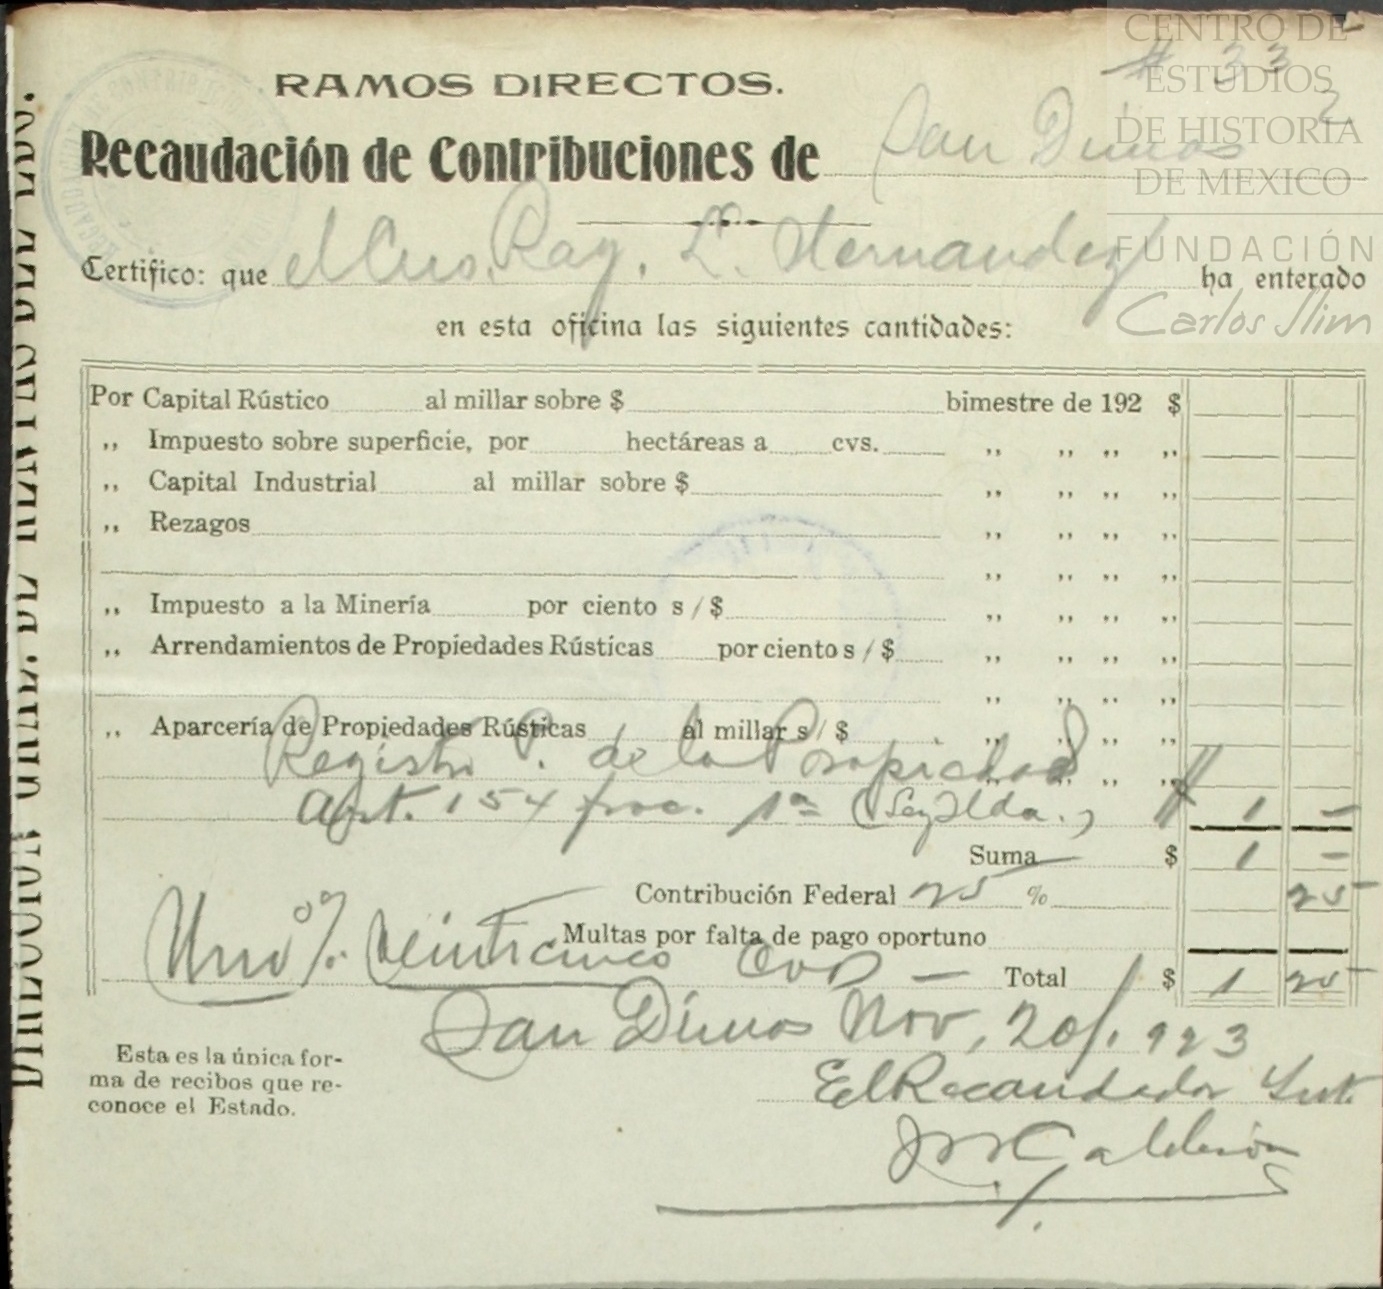 CENTRO DE
ESTUDIOS
DE HISTORIA
DE MEXICO
FUNDACIÓN
Carlos Slim
# 33
2
RAMOS DIRECTOS.
Recaudación de Contribuciones de San Dimas
Certifico: que el Cno. Ray. L. Hernandez ha enterado
en esta oficina las siguientes cantidades:
Por Capital Rústico al millar sobre $ bimestre de 192 $
,, Impuesto sobre superficie, por hectáreas a cvs. ,, ,, ,, ,,
,, Capital Industrial al millar sobre $ ,, ,, ,, ,,
,, Rezagos ,, ,, ,, ,,
,, ,, ,, ,,
,, Impuesto a la Minería por ciento s/$ ,, ,, ,, ,,
,, Arrendamientos de Propiedades Rústicas por ciento s/$ ,, ,, ,, ,,
,, ,, ,, ,,
,, Aparcería de Propiedades Rústicas al millar s/$ ,, ,, ,, ,,
Registro P. de la Propiedad ,, ,, ,,
Art. 154 frac. 1a (Ley Hda.) $ 1 -
Suma $ 1 -
Contribución Federal 25 % 25
Multas por falta de pago oportuno
Uno %. veinticinco cvs - Total $ 1 25
San Dimas Nov. 20/. 923
El Recaudador Sust.
J M Calderón
Esta es la única for-
ma de recibos que re-
conoce el Estado.
DIRECCION GRAL. DE RENTAS DEL EDO.